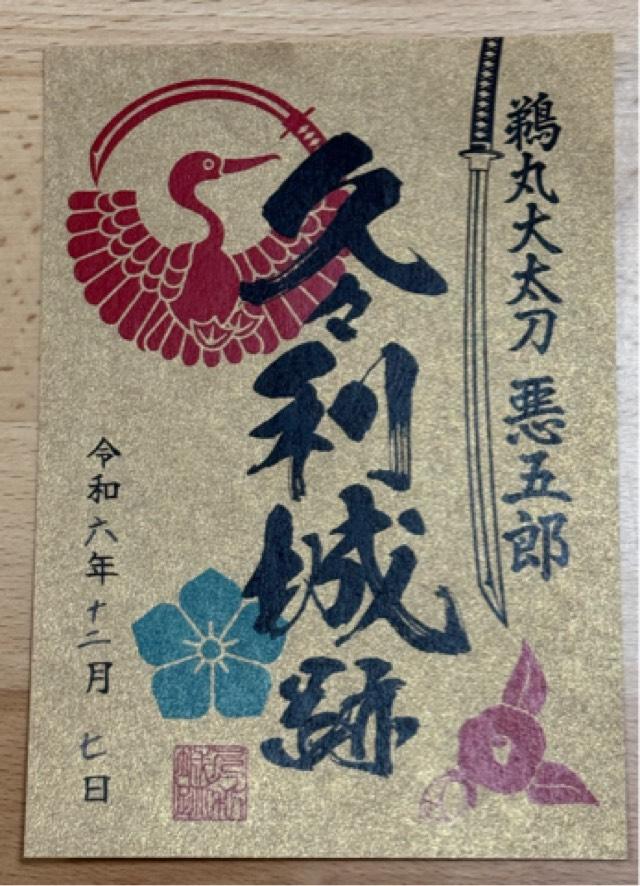 鵜丸大太刀 悪五郎
久々利城跡
令和六年十二月 七日